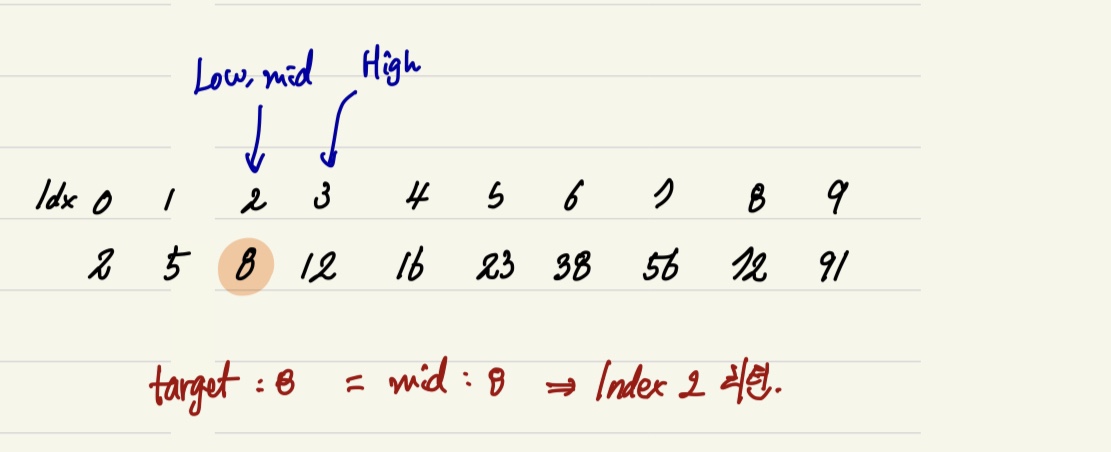 Low, mid High
Idx 0 1 2 3 4 5 6 7 8 9
2 5 8 12 16 23 38 56 72 91
target : 8 = mid : 8 ⇒ Index 2 리턴.